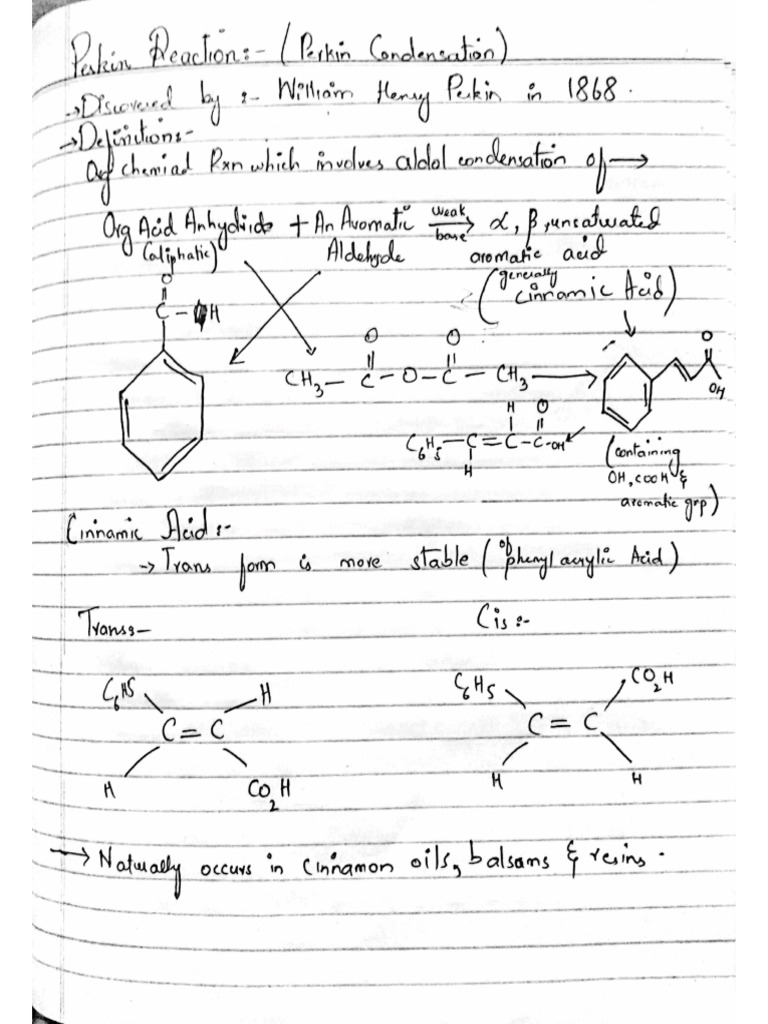 Perkin Reaction:- (Perkin Condensation)
→Discovered by :- William Henry Perkin in 1868.
→Definition:-
Org chemical Rxn which involves aldol condensation of →
Org Acid Anhydride + An Aromatic weak base → α, β, unsaturated
(aliphatic) Aldehyde aromatic acid
(generally
Cinnamic Acid)
O
C - H
O O
CH3 - C - O - C - CH3 →
O
OH
H O
C6H5 - C = C - C - OH
H
(containing
OH, COOH &
aromatic grp)
Cinnamic Acid:-
→ Trans form is more stable (of phenyl acrylic Acid)
Trans:- Cis:-
C6H5 H C6H5 CO2H
C = C C = C
H CO2H H H
→ Naturally occurs in cinnamon oils, balsams & resins.